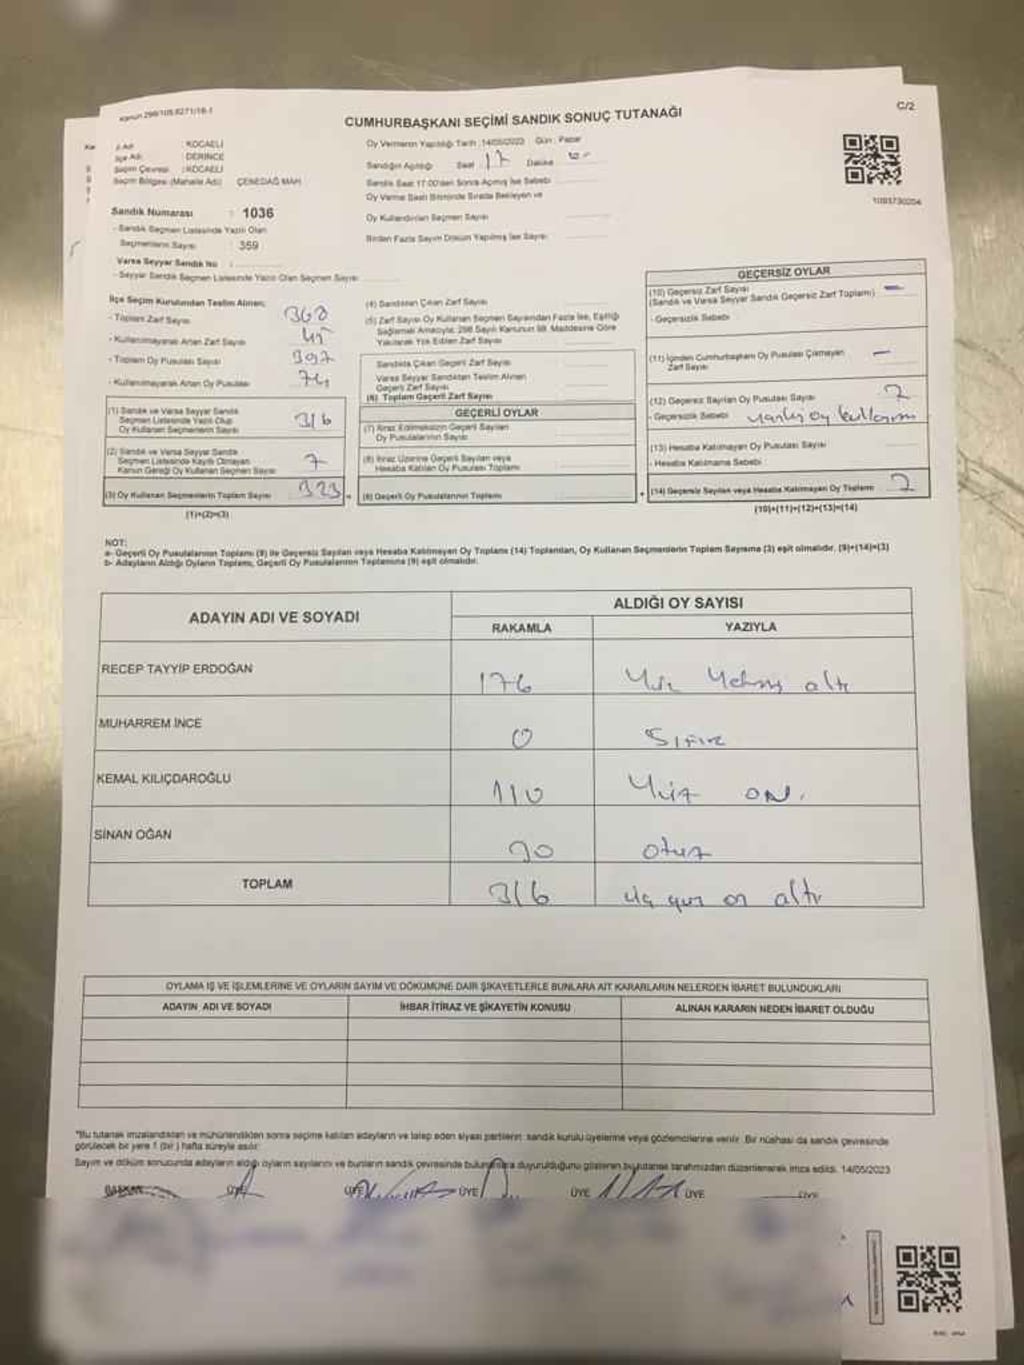 Kanun 298/105,6271/16-1
C/2
CUMHURBAŞKANI SEÇİMİ SANDIK SONUÇ TUTANAĞI
İl Adı : KOCAELİ
İlçe Adı : DERİNCE
Seçim Çevresi : KOCAELİ
Seçim Bölgesi (Mahalle Adı) ÇENEDAĞ MAH
Oy Vermenin Yapıldığı Tarih :14/05/2023 Gün : Pazar
Sandığın Açıldığı Saat 17 Dakika
Sandık Saat 17:00'den Sonra Açılmış İse Sebebi
Oy Verme Saati Bitiminde Sırada Bekleyen ve
Oy Kullandırılan Seçmen Sayısı
Birden Fazla Sayım Döküm Yapılmış İse Sayısı
1093730204
Sandık Numarası : 1036
- Sandık Seçmen Listesinde Yazılı Olan
Seçmenlerin Sayısı : 359
Varsa Seyyar Sandık No :
- Seyyar Sandık Seçmen Listesinde Yazılı Olan Seçmen Sayısı
İlçe Seçim Kurulundan Teslim Alınan;
- Toplam Zarf Sayısı 368
- Kullanılmayarak Artan Zarf Sayısı 45
- Toplam Oy Pusulası Sayısı 397
- Kullanılmayarak Artan Oy Pusulası 74
(1) Sandık ve Varsa Seyyar Sandık
Seçmen Listesinde Yazılı Olup
Oy Kullanan Seçmenlerin Sayısı 316
(2) Sandık ve Varsa Seyyar Sandık
Seçmen Listesinde Kayıtlı Olmayan
Kanun Gereği Oy Kullanan Seçmen Sayısı 7
(3) Oy Kullanan Seçmenlerin Toplam Sayısı 323 =
(1)+(2)=(3)
(4) Sandıktan Çıkan Zarf Sayısı
(5) Zarf Sayısı Oy Kullanan Seçmen Sayısından Fazla İse, Eşitliği
Sağlamak Amacıyla, 298 Sayılı Kanunun 98. Maddesine Göre
Yakılarak Yok Edilen Zarf Sayısı
Sandıkta Çıkan Geçerli Zarf Sayısı
Varsa Seyyar Sandıktan Teslim Alınan
Geçerli Zarf Sayısı
(6) Toplam Geçerli Zarf Sayısı
GEÇERLİ OYLAR
(7) İtiraz Edilmeksizin Geçerli Sayılan
Oy Pusulalarının Sayısı
(8) İtiraz Üzerine Geçerli Sayılan veya
Hesaba Katılan Oy Pusulası Toplamı
(9) Geçerli Oy Pusulalarının Toplamı
GEÇERSİZ OYLAR
(10) Geçersiz Zarf Sayısı -
(Sandık ve Varsa Seyyar Sandık Geçersiz Zarf Toplamı)
- Geçersizlik Sebebi
(11) İçinden Cumhurbaşkanı Oy Pusulası Çıkmayan -
Zarf Sayısı
(12) Geçersiz Sayılan Oy Pusulası Sayısı 7
- Geçersizlik Sebebi yanlış oy kullanımı
(13) Hesaba Katılmayan Oy Pusulası Sayısı
- Hesaba Katılmama Sebebi
+ (14) Geçersiz Sayılan veya Hesaba Katılmayan Oy Toplamı 7
(10)+(11)+(12)+(13)=(14)
NOT:
a- Geçerli Oy Pusulalarının Toplamı (9) ile Geçersiz Sayılan veya Hesaba Katılmayan Oy Toplamı (14) Toplamları, Oy Kullanan Seçmenlerin Toplam Sayısına (3) eşit olmalıdır. (9)+(14)=(3)
b- Adayların Aldığı Oyların Toplamı, Geçerli Oy Pusulalarının Toplamına (9) eşit olmalıdır.
ADAYIN ADI VE SOYADI
ALDIĞI OY SAYISI
RAKAMLA YAZIYLA
RECEP TAYYİP ERDOĞAN 176 Yüz Yetmiş altı
MUHARREM İNCE 0 Sıfır
KEMAL KILIÇDAROĞLU 110 Yüz on.
SİNAN OĞAN 30 otuz
TOPLAM 316 üç yüz on altı
OYLAMA İŞ VE İŞLEMLERİNE VE OYLARIN SAYIM VE DÖKÜMÜNE DAİR ŞİKAYETLERLE BUNLARA AİT KARARLARIN NELERDEN İBARET BULUNDUKLARI
ADAYIN ADI VE SOYADI İHBAR İTİRAZ VE ŞİKAYETİN KONUSU ALINAN KARARIN NEDEN İBARET OLDUĞU
*Bu tutanak imzalandıktan ve mühürlendikten sonra seçime katılan adayların ve talep eden siyasi partilerin sandık kurulu üyelerine veya gözlemcilerine verilir. Bir nüshası da sandık çevresinde
görülecek bir yere 1 (bir ) hafta süreyle asılır.
Sayım ve döküm sonucunda adayların aldığı oyların sayılarını ve bunların sandık çevresinde bulunanlara duyurulduğunu gösteren bu tutanak tarafımızdan düzenlenerek imza edildi. 14/05/2023
BAŞKAN ÜYE ÜYE ÜYE ÜYE ÜYE ÜYE